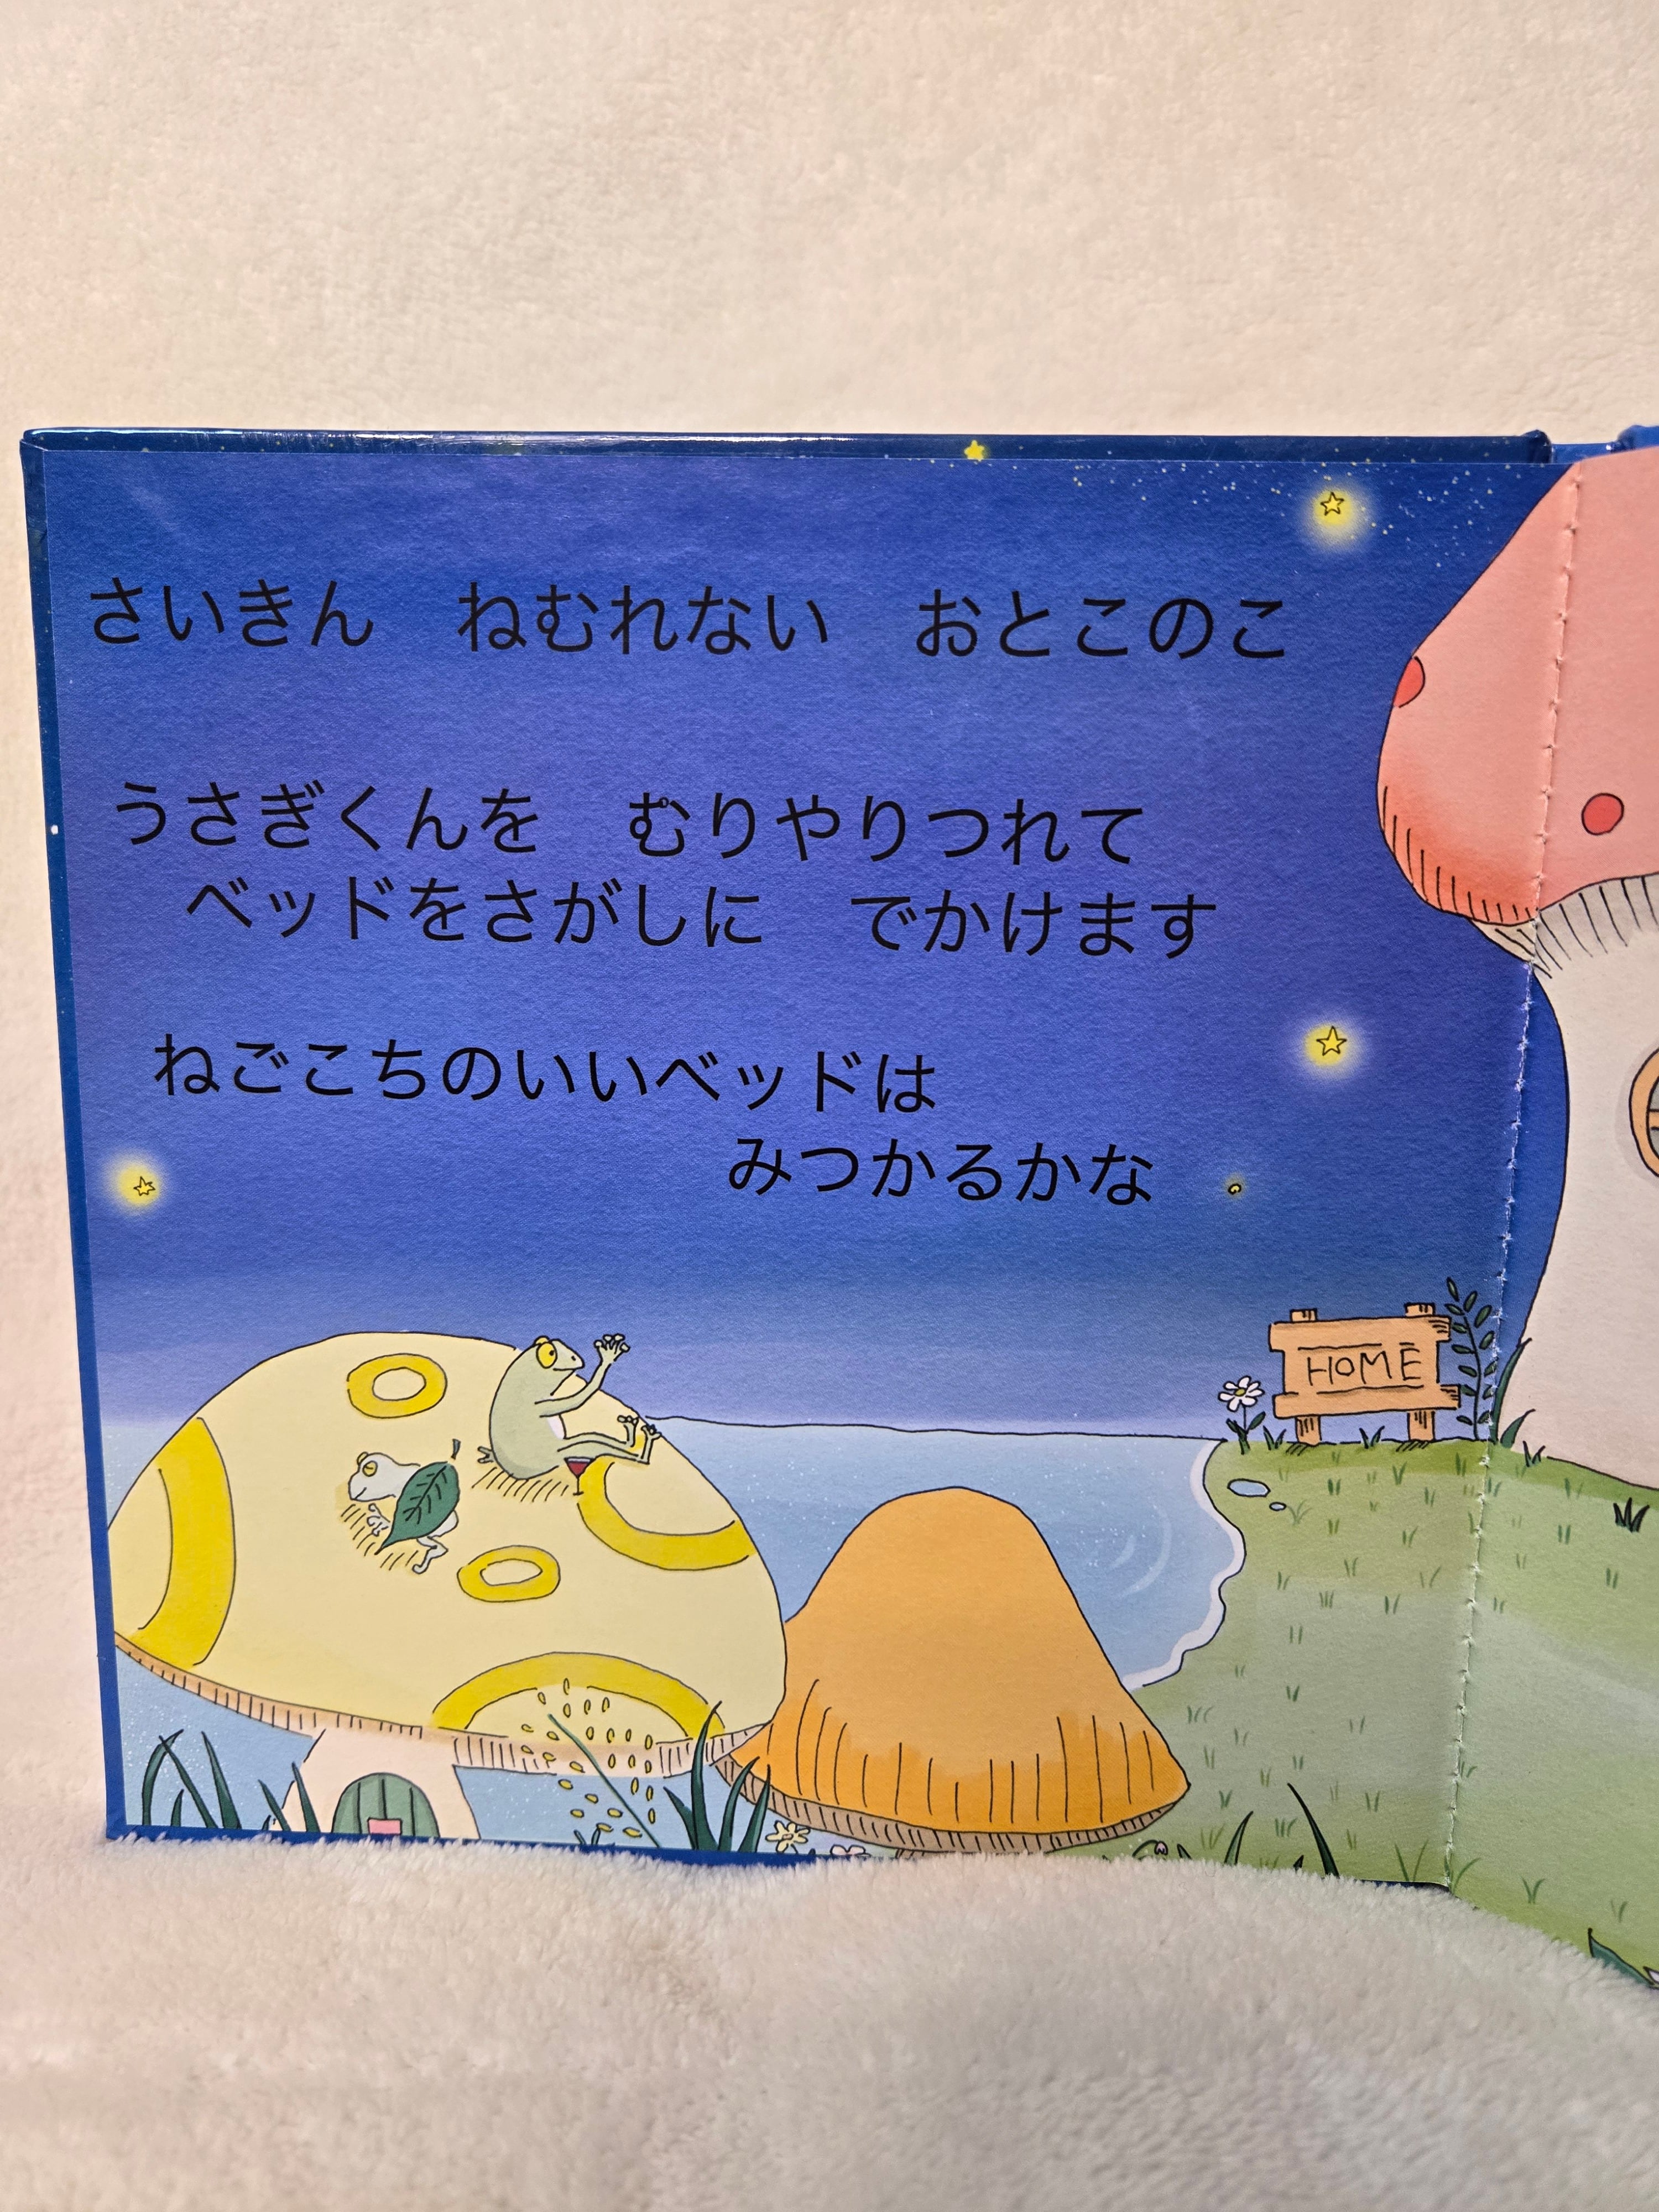 さいきん　ねむれない　おとこのこ
うさぎくんを　むりやりつれて
ベッドをさがしに　でかけます
ねごこちのいいベッドは
みつかるかな
HOME